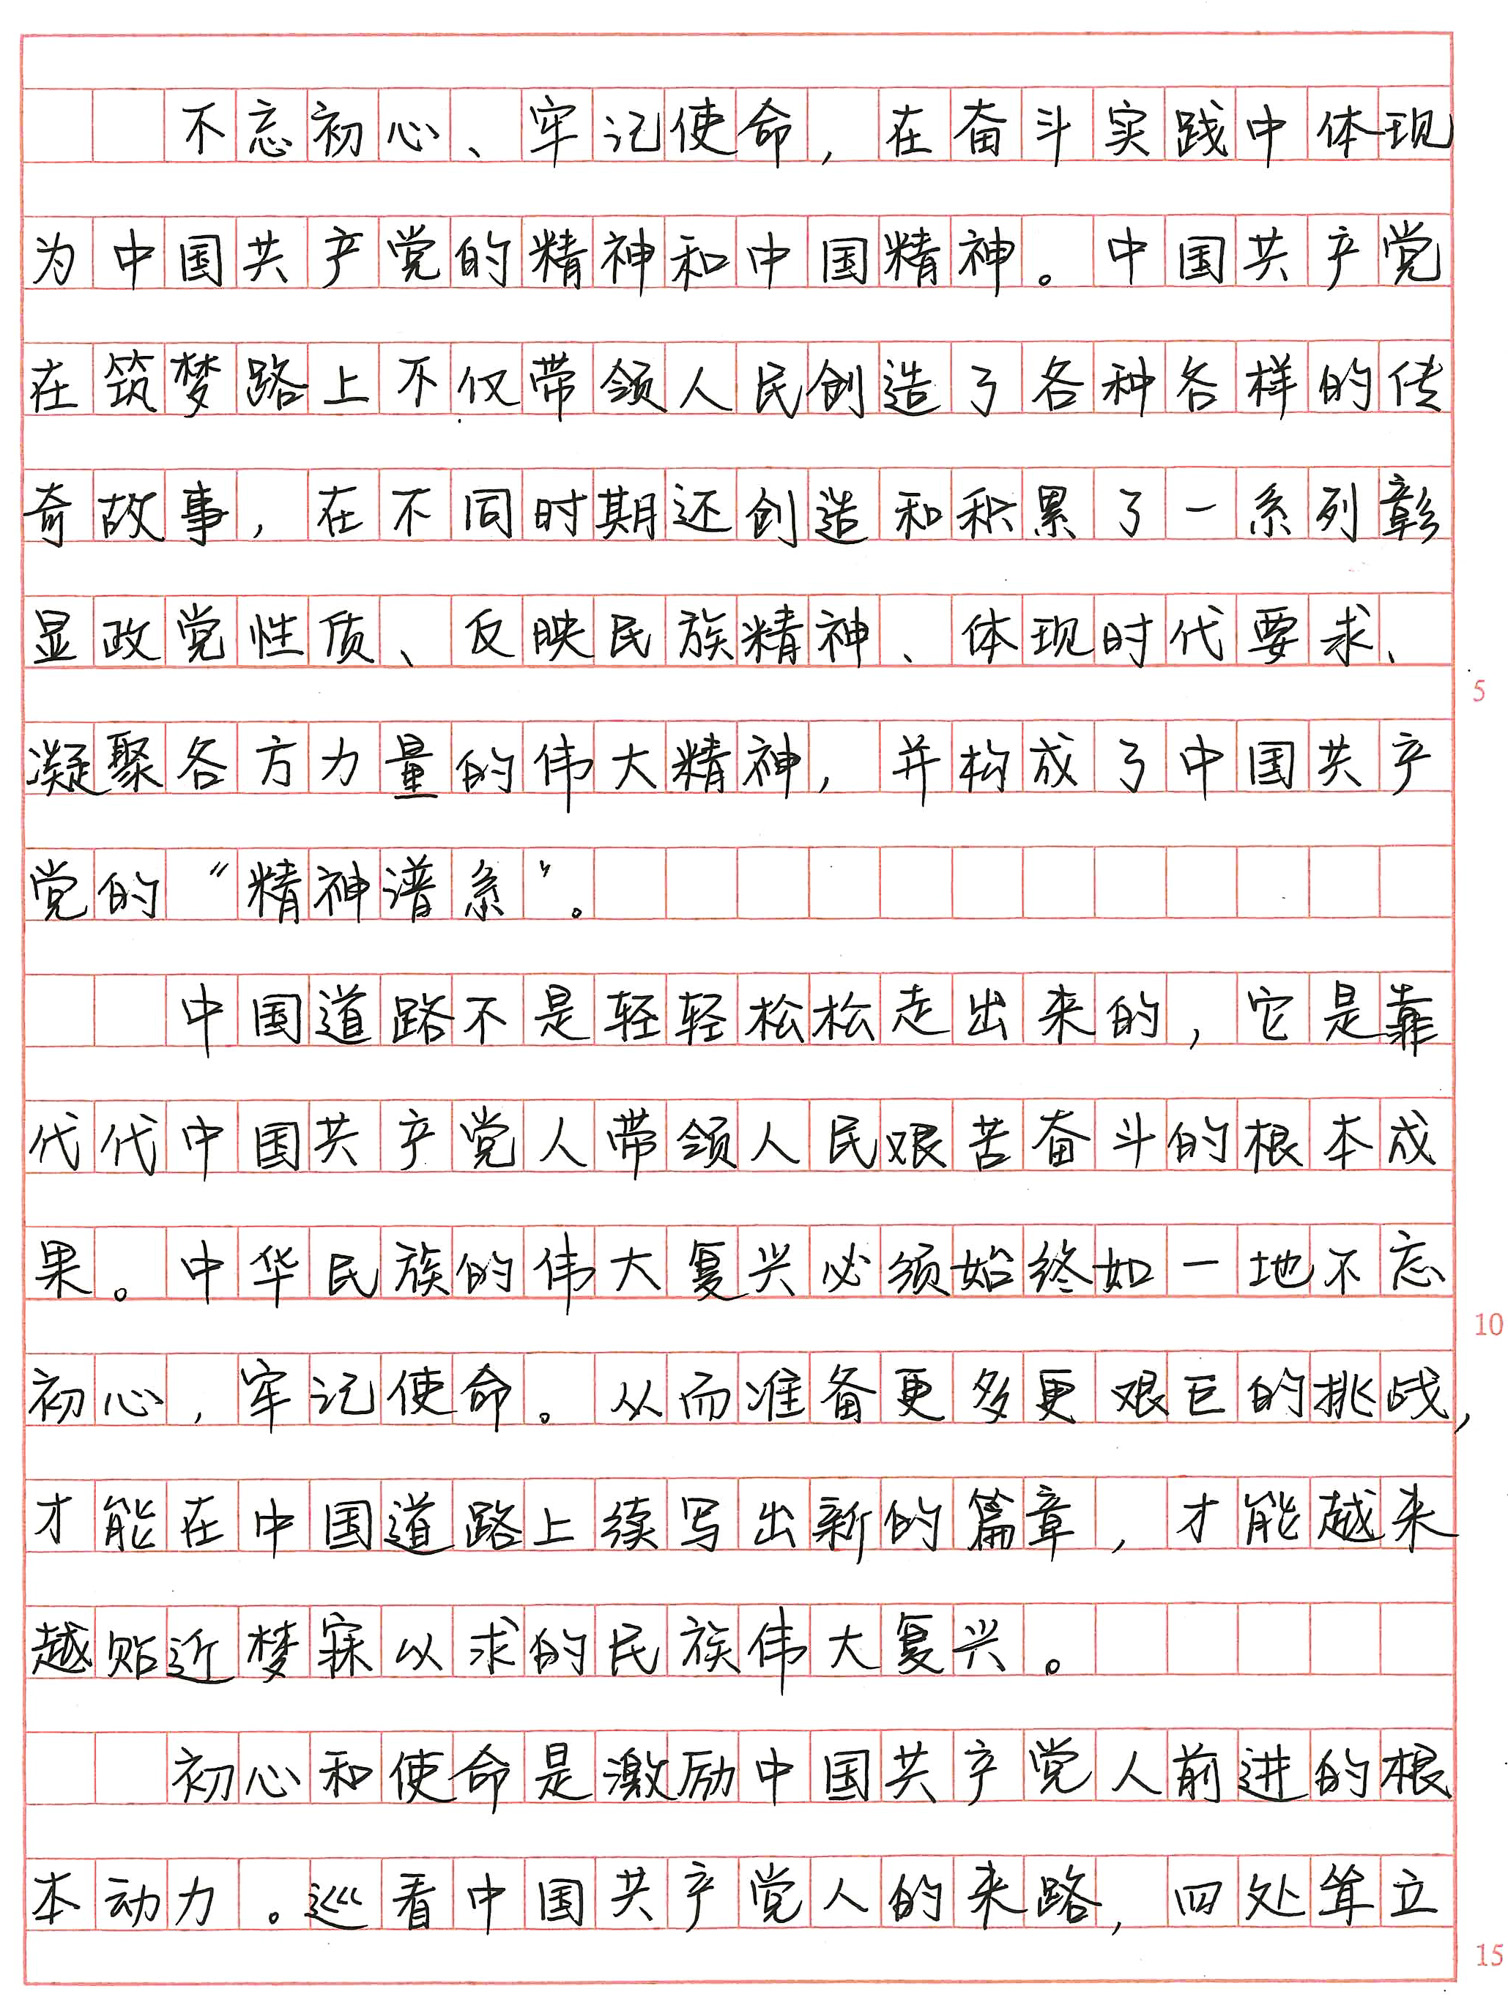 不忘初心、牢记使命，在奋斗实践中体现
为中国共产党的精神和中国精神。中国共产党
在筑梦路上不仅带领人民创造了各种各样的传
奇故事，在不同时期还创造和积累了一系列彰
显政党性质、反映民族精神、体现时代要求、
5
凝聚各方力量的伟大精神，并构成了中国共产
党的“精神谱系”。
中国道路不是轻轻松松走出来的，它是靠
代代中国共产党人带领人民艰苦奋斗的根本成
果。中华民族的伟大复兴必须始终如一地不忘
10
初心，牢记使命。从而准备更多更艰巨的挑战，
才能在中国道路上续写出新的篇章，才能越来
越贴近梦寐以求的民族伟大复兴。
初心和使命是激励中国共产党人前进的根
本动力。巡看中国共产党人的来路，四处耸立
15